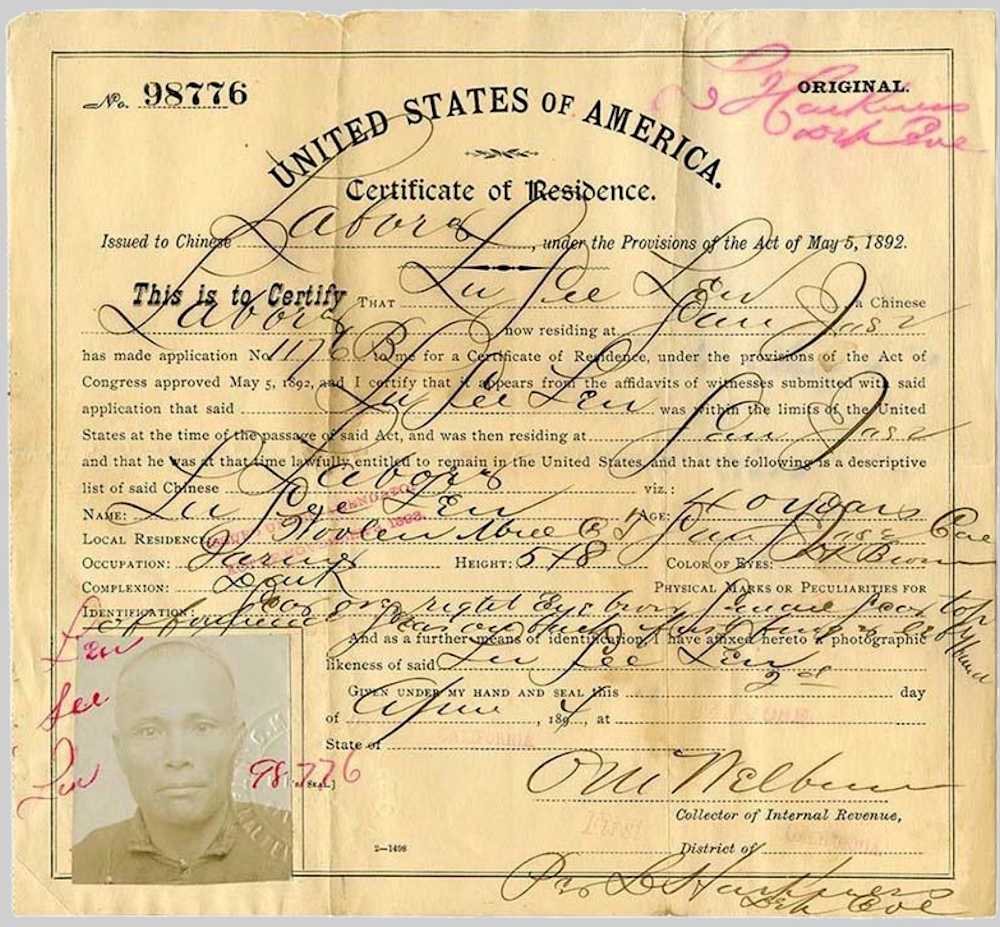 No. 98776
ORIGINAL.
L Harkness
UNITED STATES OF AMERICA.
Certificate of Residence.
Issued to Chinese Laborer, under the Provisions of the Act of May 5, 1892.
This is to Certify THAT Lu See Len, a Chinese
Laborer now residing at San Jose
has made application No. 1176 B to me for a Certificate of Residence, under the provisions of the Act of
Congress approved May 5, 1892, and I certify that it appears from the affidavits of witnesses submitted with said
application that said Lu See Len was within the limits of the United
States at the time of the passage of said Act, and was then residing at San Jose
and that he was at that time lawfully entitled to remain in the United States, and that the following is a descriptive
list of said Chinese Laborer viz.:
NAME: Lu See Len AGE: 40 years
LOCAL RESIDENCE: Woolen Mill San Jose Cal
OCCUPATION: HEIGHT: 5 COLOR OF EYES: Dk Brown
COMPLEXION: Dark PHYSICAL MARKS OR PECULIARITIES FOR
IDENTIFICATION: Scar over right Eye brow top
of forehead
And as a further means of identification, I have affixed hereto a photographic
likeness of said Lu See Len
GIVEN UNDER MY HAND AND SEAL this 2d day
of April, 1894, at
State of CALIFORNIA
Len
See
Lu
98776
[SEAL.]
O M Welburn
Collector of Internal Revenue,
First District of
2—1498
Per L Harkness